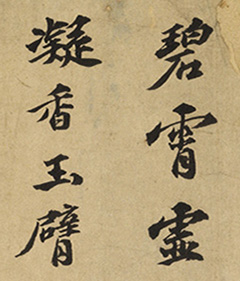 碧霄霊
凝香玉臂